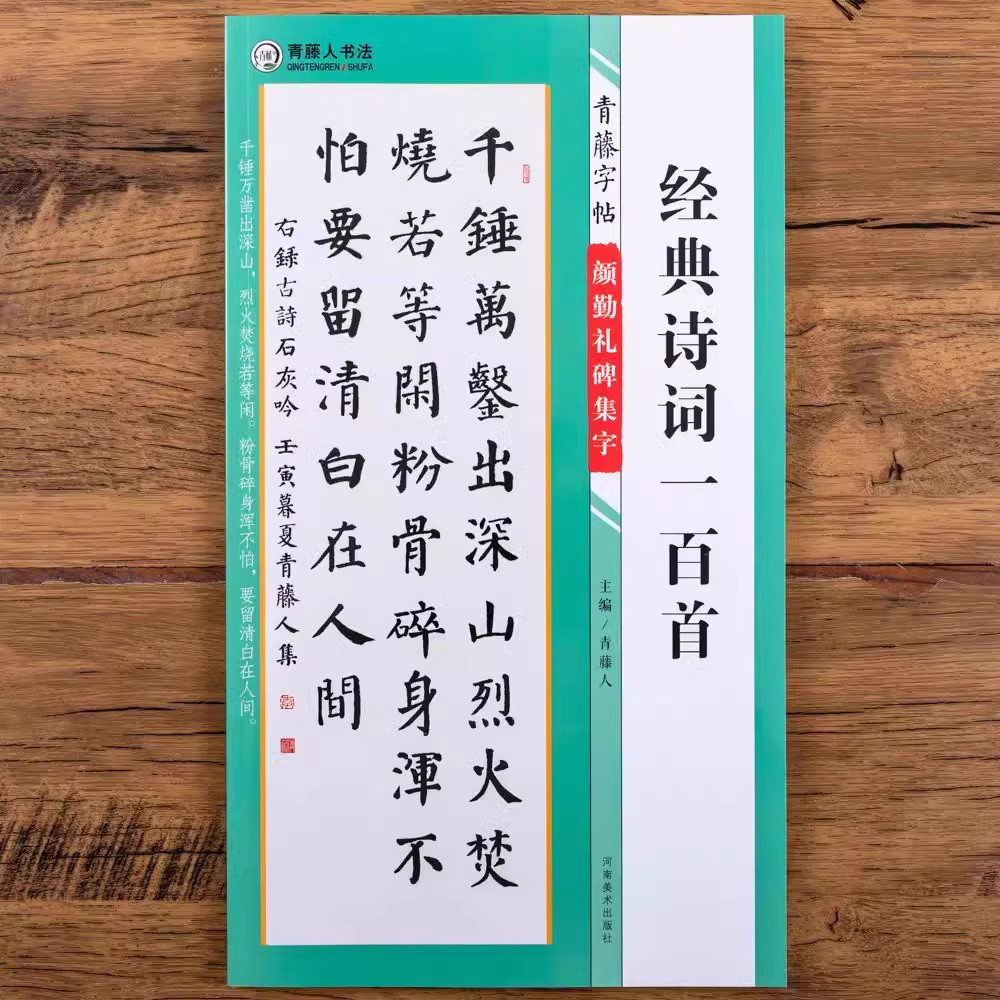 青藤人书法
QINGTENGREN/SHUFA
经典诗词一百首
青藤字帖
颜勤礼碑集字
主编/青藤人
河南美术出版社
千錘萬鑿出深山烈火焚
燒若等閑粉骨碎身渾不
怕要留清白在人間
右録古詩石灰吟 壬寅暮夏青藤人集
千锤万凿出深山，烈火焚烧若等闲。粉骨碎身浑不怕，要留清白在人间。